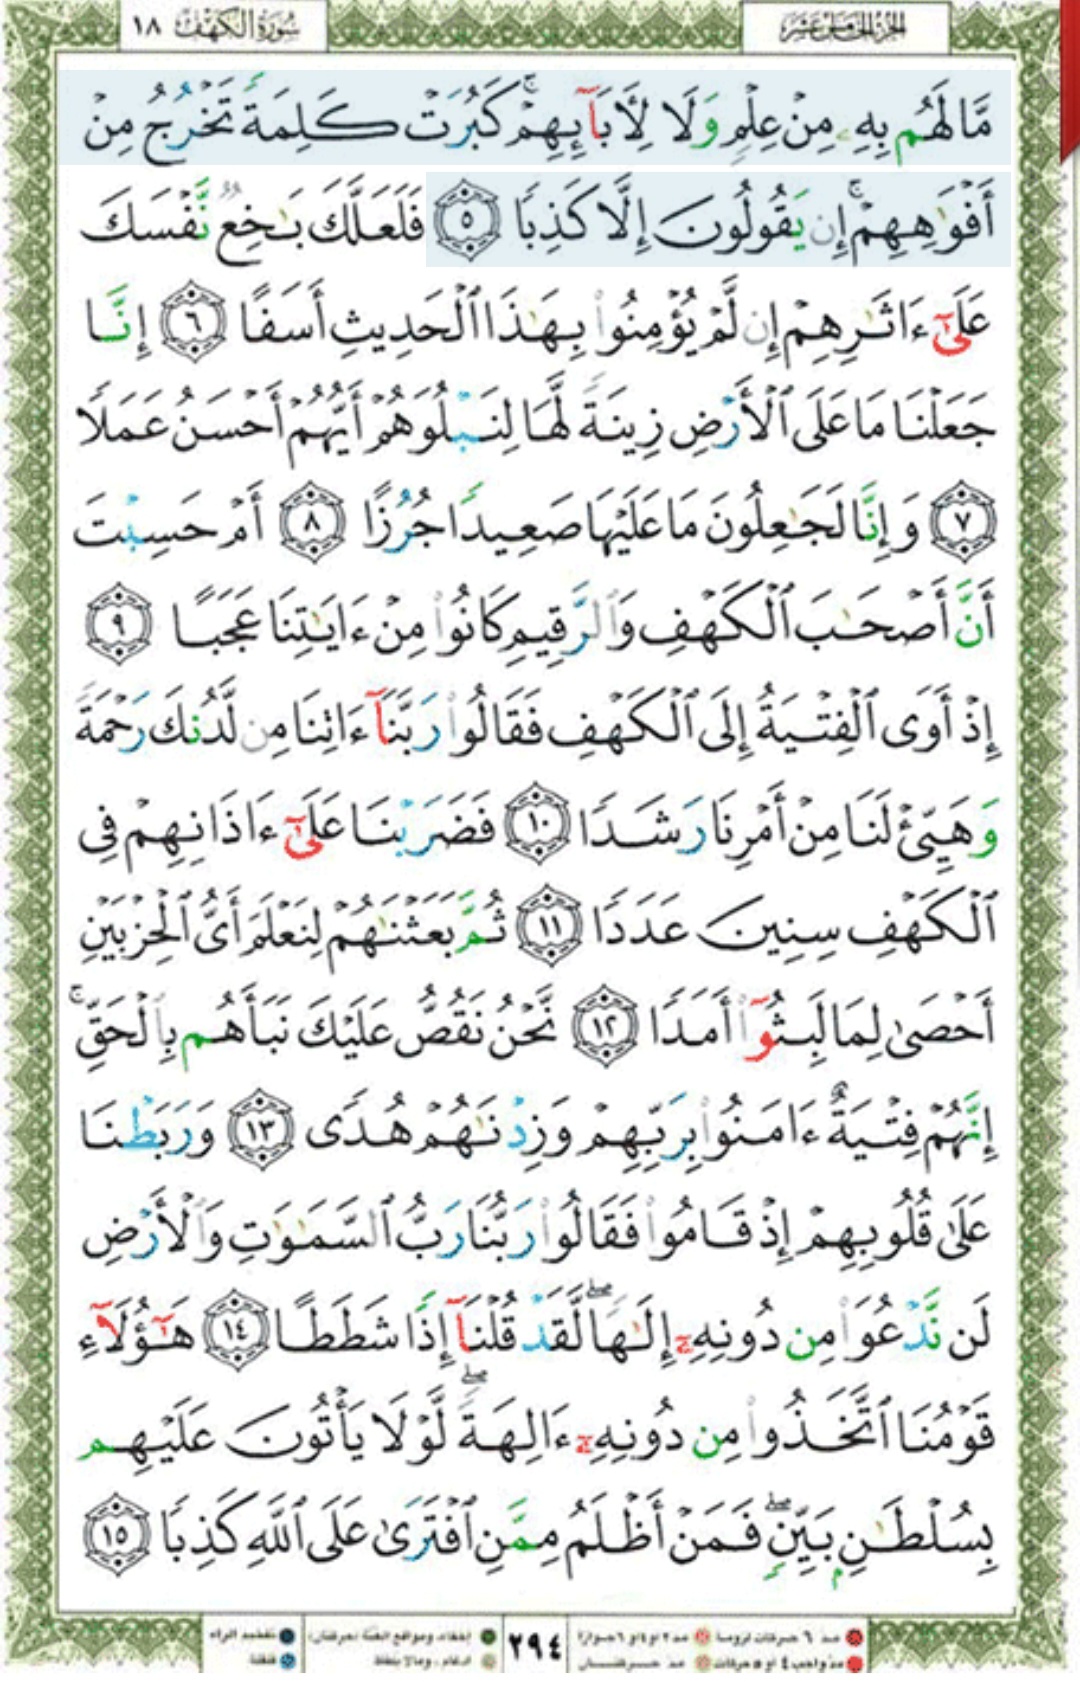 سُورَةُ الكَهْفِ ١٨
الجُزءُ الخَامِسَ عَشَرَ
مَّا لَهُم بِهِۦ مِنْ عِلْمٍ وَلَا لِأَبَآئِهِمْ ۚ كَبُرَتْ كَلِمَةً تَخْرُجُ مِنْ
أَفْوَٰهِهِمْ ۚ إِن يَقُولُونَ إِلَّا كَذِبًا ٥ فَلَعَلَّكَ بَـٰخِعٌ نَّفْسَكَ
عَلَىٰٓ ءَاثَـٰرِهِمْ إِن لَّمْ يُؤْمِنُوا۟ بِهَـٰذَا ٱلْحَدِيثِ أَسَفًا ٦ إِنَّا
جَعَلْنَا مَا عَلَى ٱلْأَرْضِ زِينَةً لَّهَا لِنَبْلُوَهُمْ أَيُّهُمْ أَحْسَنُ عَمَلًا
٧ وَإِنَّا لَجَـٰعِلُونَ مَا عَلَيْهَا صَعِيدًا جُرُزًا ٨ أَمْ حَسِبْتَ
أَنَّ أَصْحَـٰبَ ٱلْكَهْفِ وَٱلرَّقِيمِ كَانُوا۟ مِنْ ءَايَـٰتِنَا عَجَبًا ٩
إِذْ أَوَى ٱلْفِتْيَةُ إِلَى ٱلْكَهْفِ فَقَالُوا۟ رَبَّنَآ ءَاتِنَا مِن لَّدُنكَ رَحْمَةً
وَهَيِّئْ لَنَا مِنْ أَمْرِنَا رَشَدًا ١٠ فَضَرَبْنَا عَلَىٰٓ ءَاذَانِهِمْ فِى
ٱلْكَهْفِ سِنِينَ عَدَدًا ١١ ثُمَّ بَعَثْنَـٰهُمْ لِنَعْلَمَ أَىُّ ٱلْحِزْبَيْنِ
أَحْصَىٰ لِمَا لَبِثُوٓا۟ أَمَدًا ١٢ نَّحْنُ نَقُصُّ عَلَيْكَ نَبَأَهُم بِٱلْحَقِّ ۚ
إِنَّهُمْ فِتْيَةٌ ءَامَنُوا۟ بِرَبِّهِمْ وَزِدْنَـٰهُمْ هُدًى ١٣ وَرَبَطْنَا
عَلَىٰ قُلُوبِهِمْ إِذْ قَامُوا۟ فَقَالُوا۟ رَبُّنَا رَبُّ ٱلسَّمَـٰوَٰتِ وَٱلْأَرْضِ
لَن نَّدْعُوَا۟ مِن دُونِهِۦٓ إِلَـٰهًا ۖ لَّقَدْ قُلْنَآ إِذًا شَطَطًا ١٤ هَـٰٓؤُلَآءِ
قَوْمُنَا ٱتَّخَذُوا۟ مِن دُونِهِۦٓ ءَالِهَةً ۖ لَّوْلَا يَأْتُونَ عَلَيْهِم
بِسُلْطَـٰنٍۭ بَيِّنٍ ۖ فَمَنْ أَظْلَمُ مِمَّنِ ٱفْتَرَىٰ عَلَى ٱللَّهِ كَذِبًا ١٥
مد ٦ حركات لزوما مد ٢ او ٤ او ٦ جوازا
مد واجب ٤ او ٥ حركات مد حركتان
٢٩٤
إخفاء، ومواقع الغنة (حركتان)
ادغام، ومالا يلفظ
تفخيم الراء
قلقلة